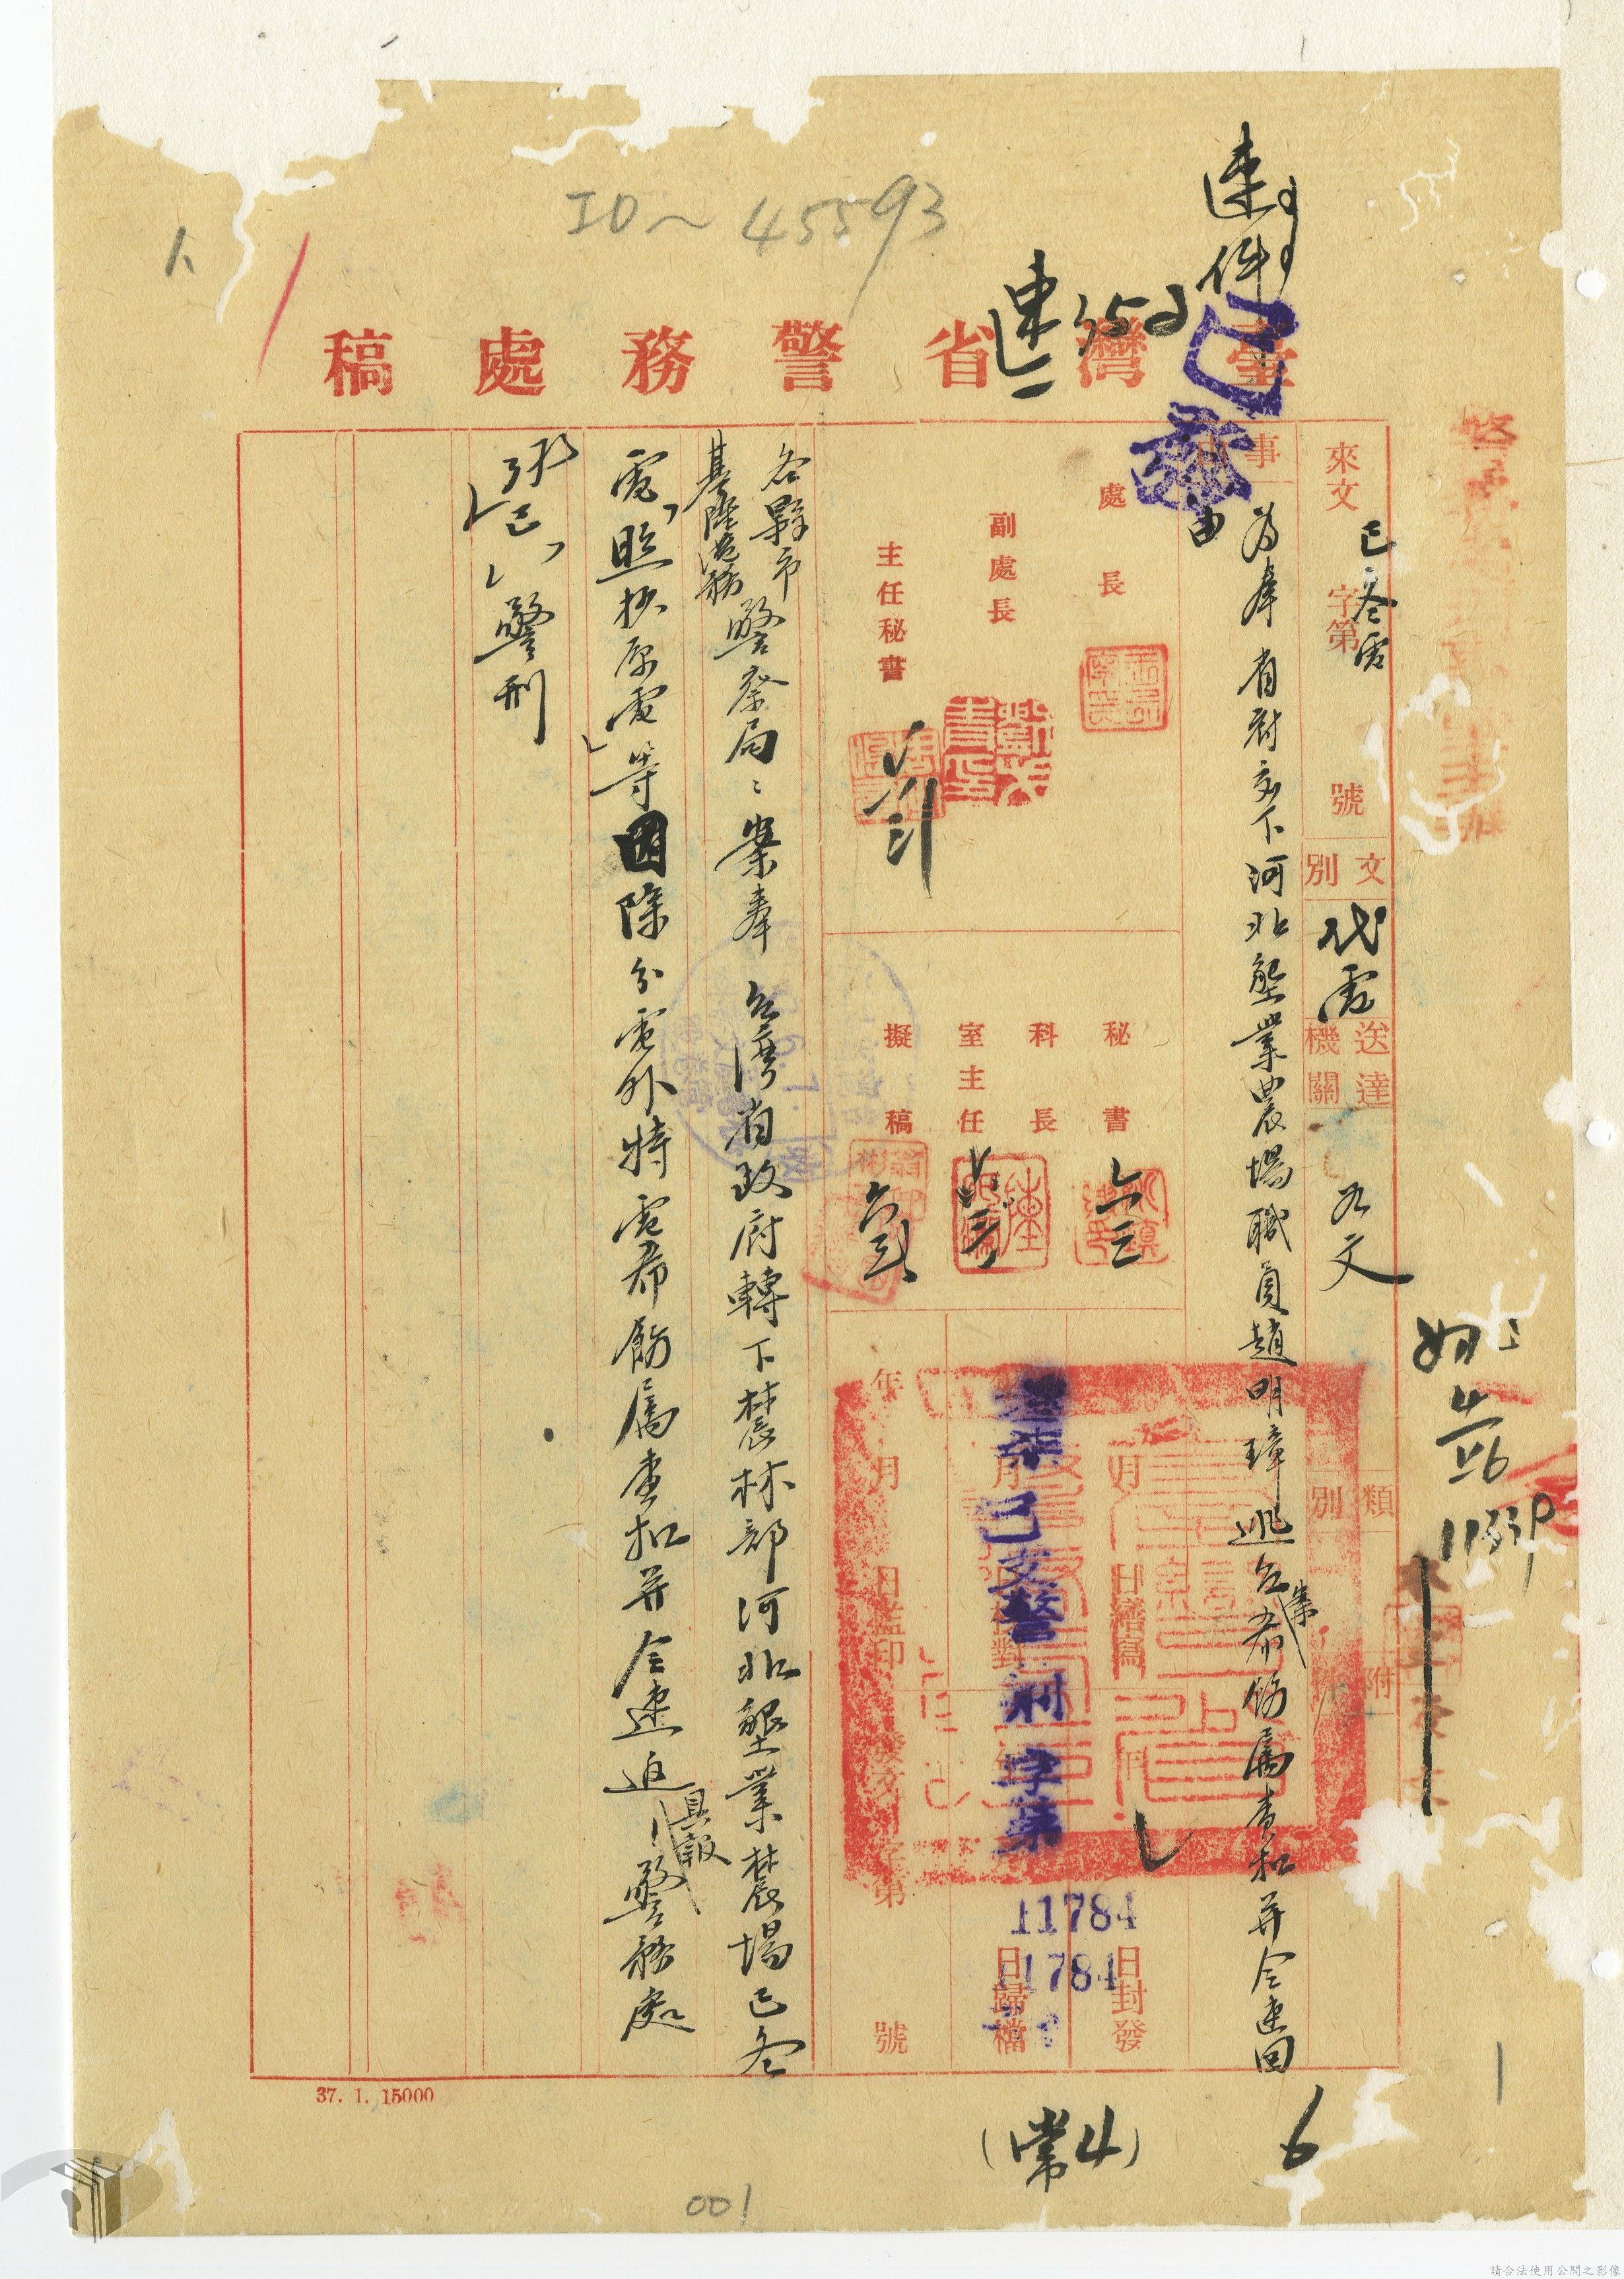 ID~45593
速件
速
已發
臺灣省警務處稿
來文 字第 號
巳冬電
文別
代電
送達機關
類別
附件
事由
為奉省府交下河北墾業農場職員趙明璋逃台案希飭屬查扣并令速回
處長
副處長
主任秘書
秘書
科長
室主任
擬稿
月 日繕寫
月 日校對
年 月 日監印
年 日封發
日歸檔
發文 字第 號
巳文警刑字第
11784
11784
各縣市
基隆港務
警察局:案奉台灣省政府轉下農林部河北墾業農場巳冬
電「照抄原電」等因除分電外特電希飭屬查扣并令速返具報警務處
巳 警刑
37. 1. 15000
(常4)
6
001
請合法使用公開之影像